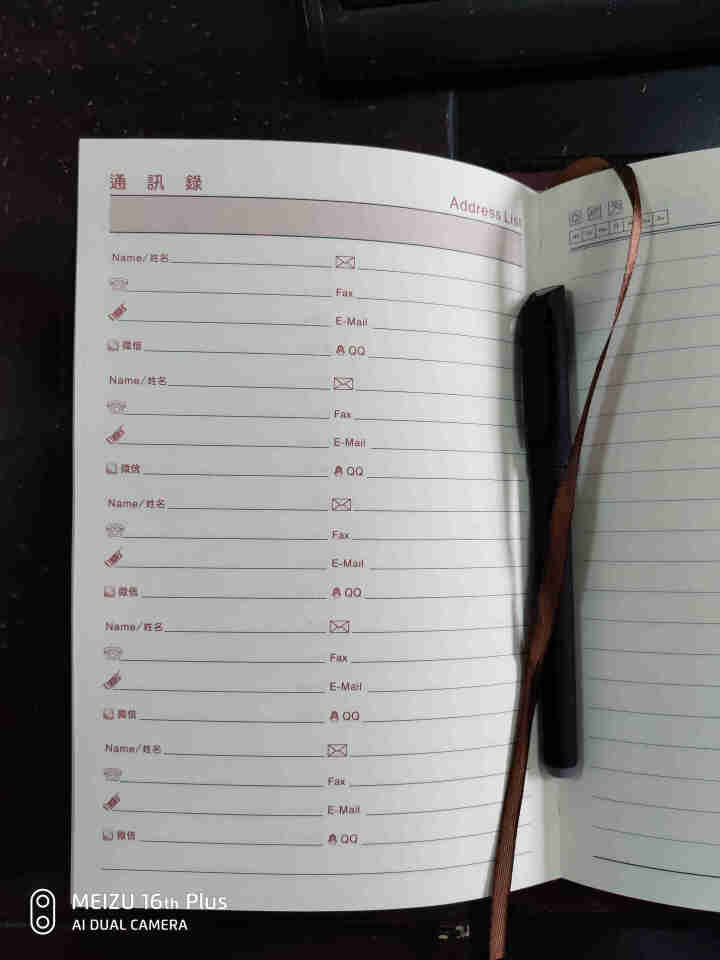 通 訊 錄
Address List
Name/姓名
Fax
E-Mail
微信 QQ
Name/姓名
Fax
E-Mail
微信 QQ
Name/姓名
Fax
E-Mail
微信 QQ
Name/姓名
Fax
E-Mail
微信 QQ
Name/姓名
Fax
E-Mail
微信 QQ
MEIZU 16th Plus
AI DUAL CAMERA